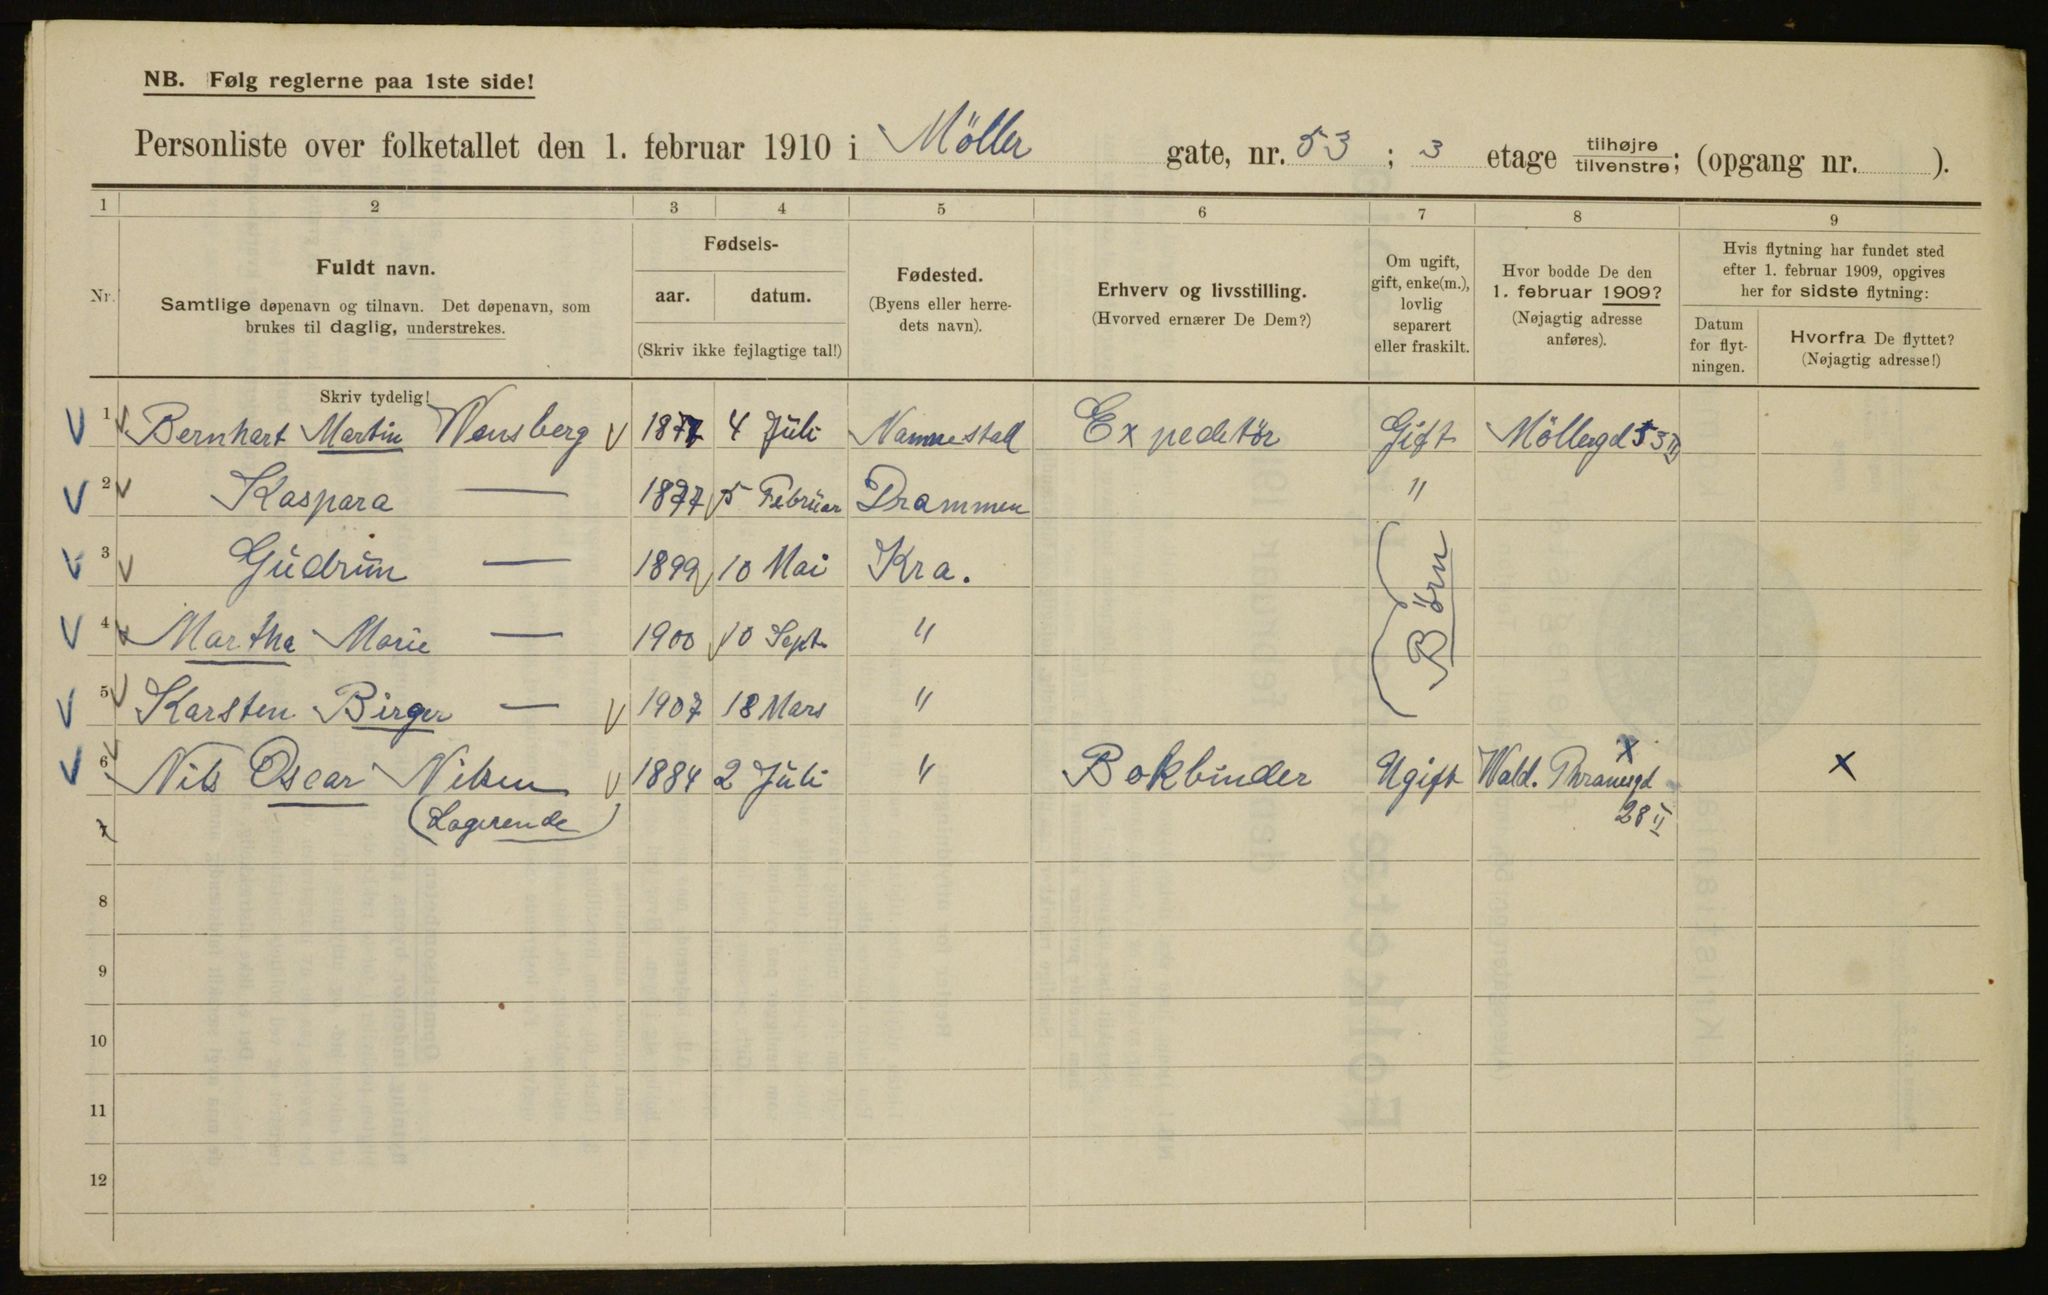 NB. Følg reglerne paa 1ste side!
Personliste over folketallet den 1. februar 1910 i Møller gate, nr. 53 ; 3 etage tilhøjre tilvenstre; (opgang nr. ).
1 2 3 4 5 6 7 8 9
Nr.
Fuldt navn.
Samtlige døpenavn og tilnavn. Det døpenavn, som
brukes til daglig, understrekes.
Fødsels-
aar. datum.
(Skriv ikke fejlagtige tal!)
Fødested.
(Byens eller herre-
dets navn).
Erhverv og livsstilling.
(Hvorved ernærer De Dem?)
Om ugift,
gift, enke(m.),
lovlig
separert
eller fraskilt.
Hvor bodde De den
1. februar 1909?
(Nøjagtig adresse
anføres).
Hvis flytning har fundet sted
efter 1. februar 1909, opgives
her for sidste flytning:
Datum
for flyt-
ningen.
Hvorfra De flyttet?
(Nøjagtig adresse!)
Skriv tydelig!
1 Bernhart Martin Wensberg 1877 4 Juli Nannestad Expeditør Gift Møllergd 53 III
2 Kaspara — 1877 5 Februar Drammen "
3 Gudrun — 1899 10 Mai Kra. Børn
4 Martha Marie — 1900 10 Sept. "
5 Karsten Birger — 1907 18 Mars "
6 Nils Oscar Nilsen 1884 2 Juli " Bokbinder Ugift Wald. Thranesgd x x
7 (Logerende) 28 II
8
9
10
11
12